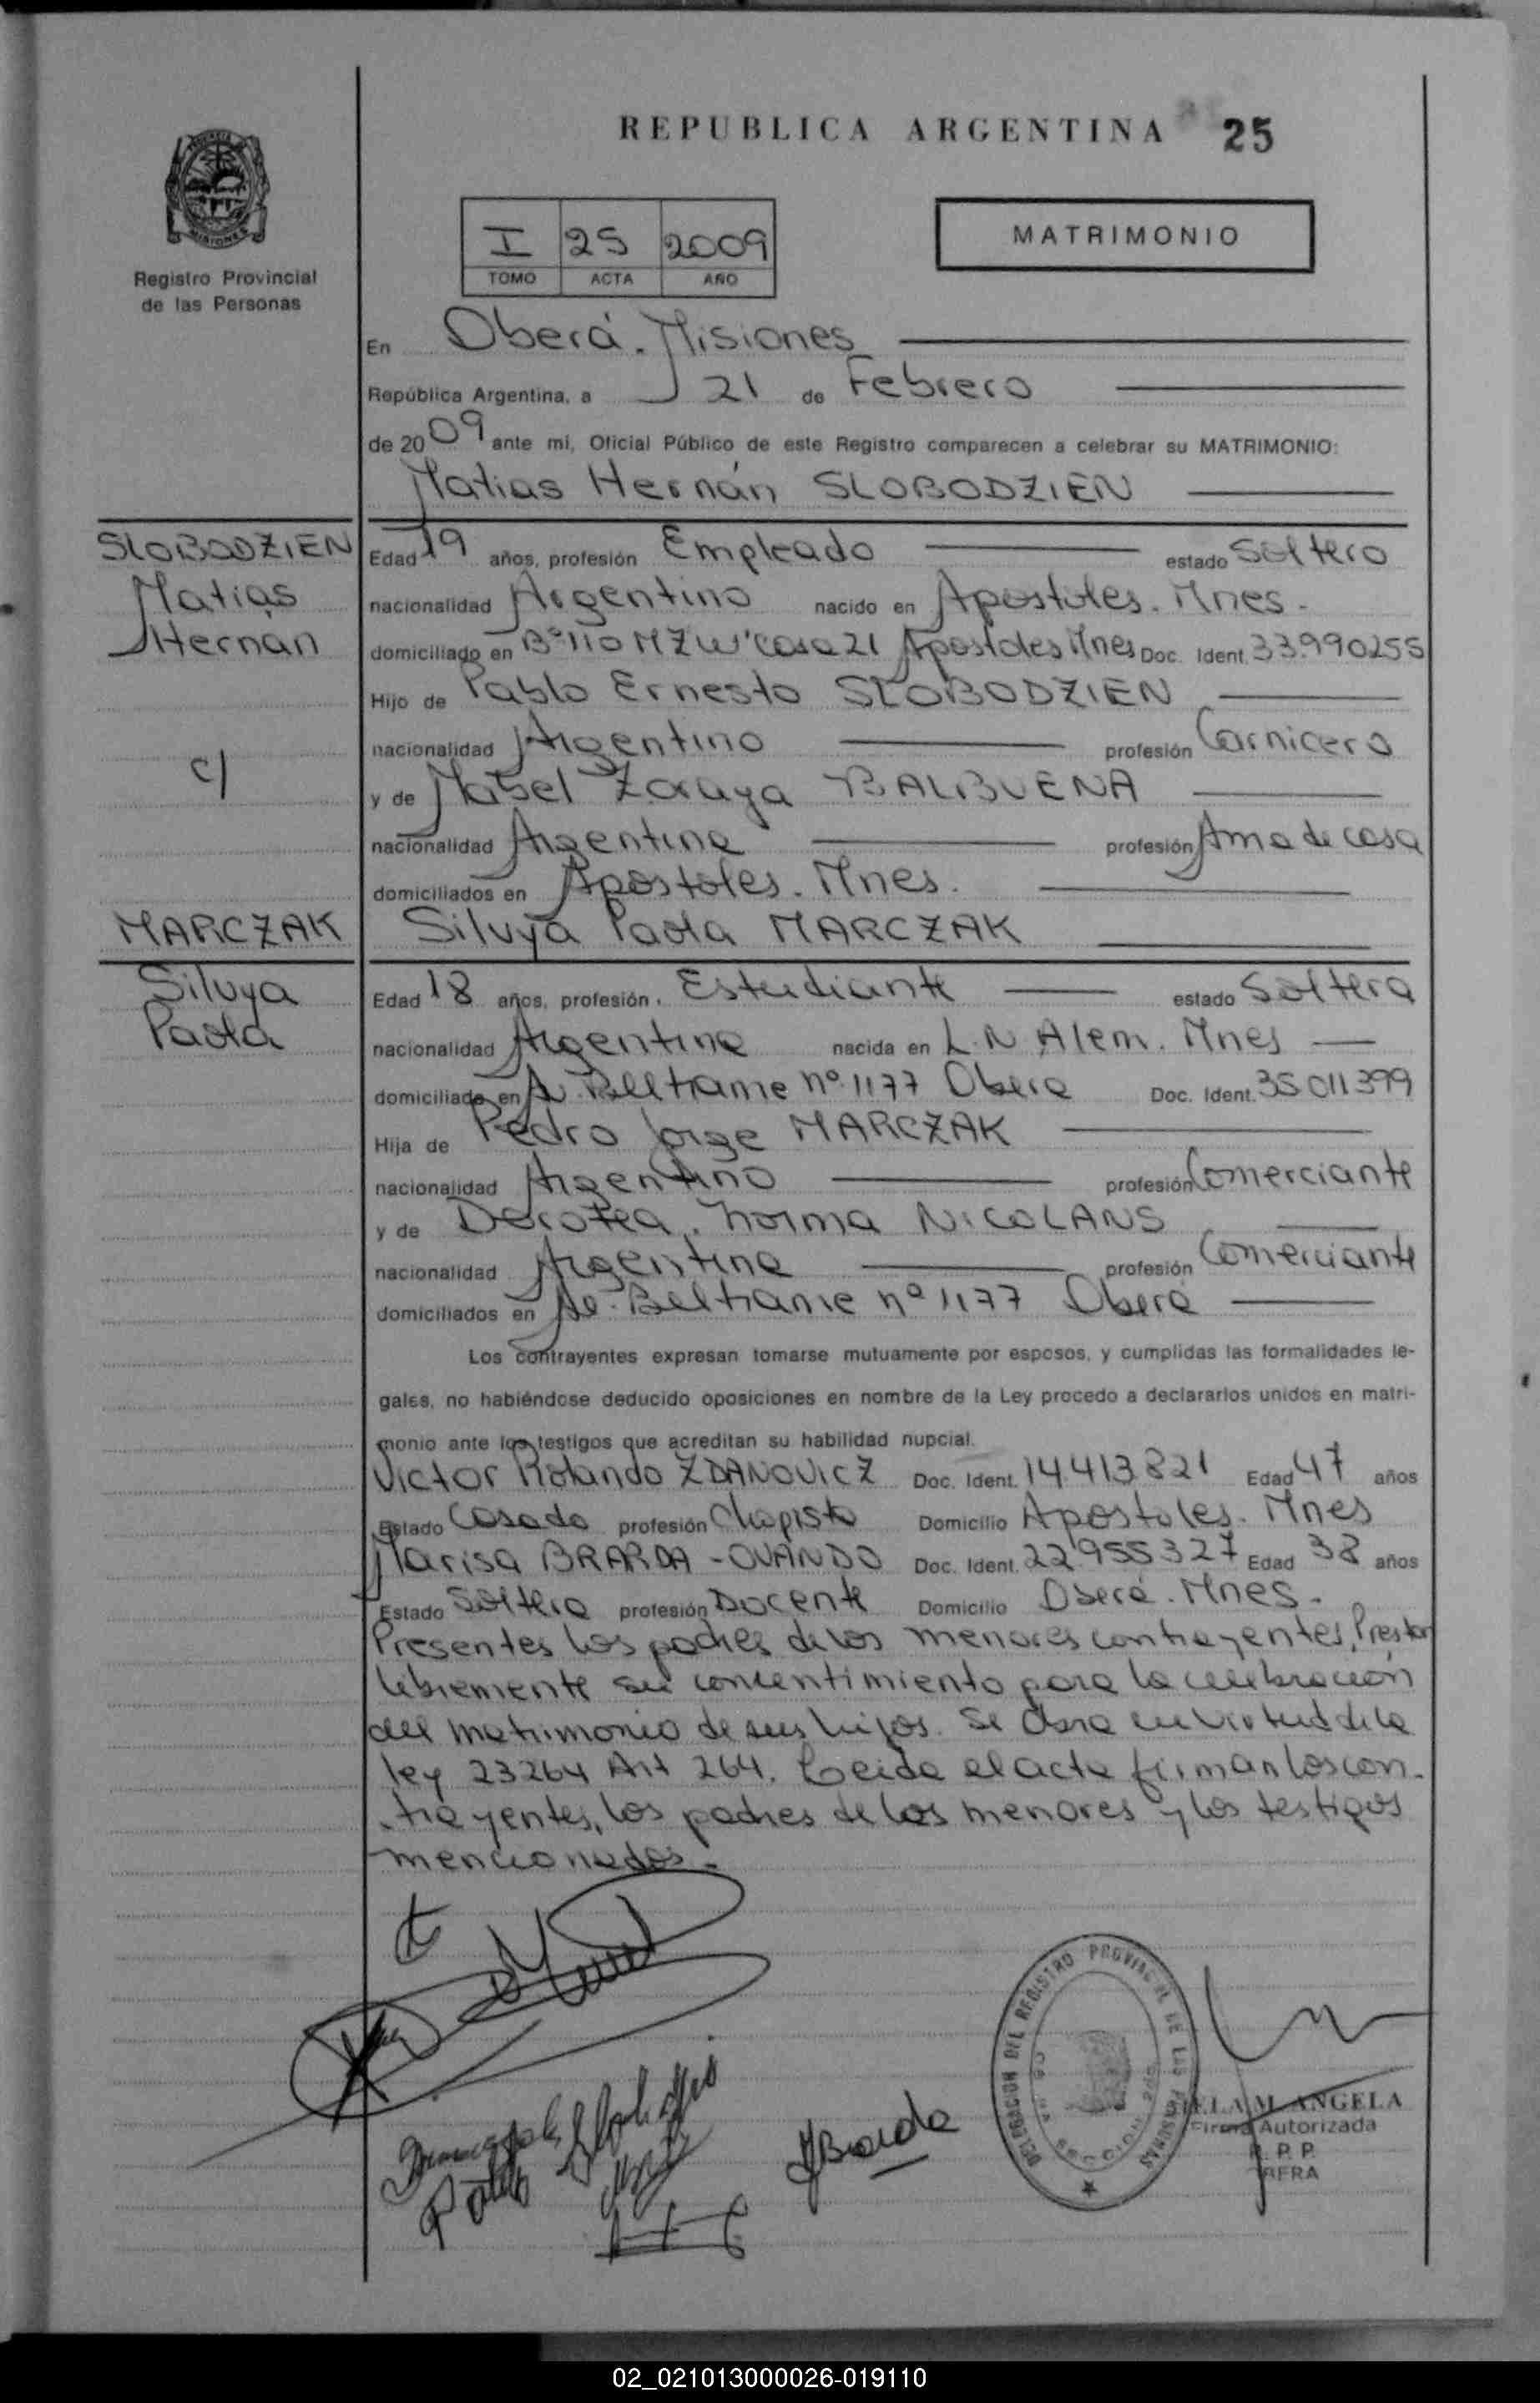 REPUBLICA ARGENTINA 25
I 25 2009
TOMO ACTA AÑO
MATRIMONIO
Registro Provincial
de las Personas
En Oberá. Misiones
República Argentina, a 21 de Febrero
de 2009 ante mi, Oficial Público de este Registro comparecen a celebrar su MATRIMONIO:
Matias Hernán SLOBODZIEN
SLOBODZIEN
Matias
Hernan
c/
MARCZAK
Silvya
Paola
Edad 19 años, profesión Empleado estado Soltero
nacionalidad Argentino nacido en Apostoles. Mnes.
domiciliado en Bº 110 MZ W' casa 21 Apostoles Mnes Doc. Ident. 33.990255
Hijo de Pablo Ernesto SLOBODZIEN
nacionalidad Argentino profesión Carnicero
y de Mabel Zoraya BALBUENA
nacionalidad Argentina profesión Ama de casa
domiciliados en Apostoles. Mnes.
Silvya Paola MARCZAK
Edad 18 años, profesión Estudiante estado Soltera
nacionalidad Argentina nacida en L.N Alem. Mnes
domiciliada en Av. Beltrame nº 1177 Obera Doc. Ident. 35011399
Hija de Pedro Jorge MARCZAK
nacionalidad Argentino profesión Comerciante
y de Dorotea. Norma NICOLANS
nacionalidad Argentina profesión Comerciante
domiciliados en Av. Beltrame nº 1177 Oberá
Los contrayentes expresan tomarse mutuamente por esposos, y cumplidas las formalidades le-
gales, no habiéndose deducido oposiciones en nombre de la Ley procedo a declararlos unidos en matri-
monio ante los testigos que acreditan su habilidad nupcial.
Victor Rolando ZDANOVICZ Doc. Ident. 14.413.821 Edad 47 años
Estado Casado profesión Chapista Domicilio Apostoles. Mnes
Marisa BRARDA - OVANDO Doc. Ident. 22.955327 Edad 38 años
Estado Soltera profesión Docente Domicilio Oberá. Mnes.
Presentes los padres de los menores contrayentes, Prestan
libremente su consentimiento para la celebración
del matrimonio de sus hijos. Se obra en virtud de la
ley 23264 Art 264. Leida el acta firman los con-
trayentes, los padres de los menores y los testigos
mencionados.
DELEGACION DEL REGISTRO PROVINCIAL DE LAS PERSONAS
M. ANGELA
Firma Autorizada
R. P. P.
02_021013000026-019110